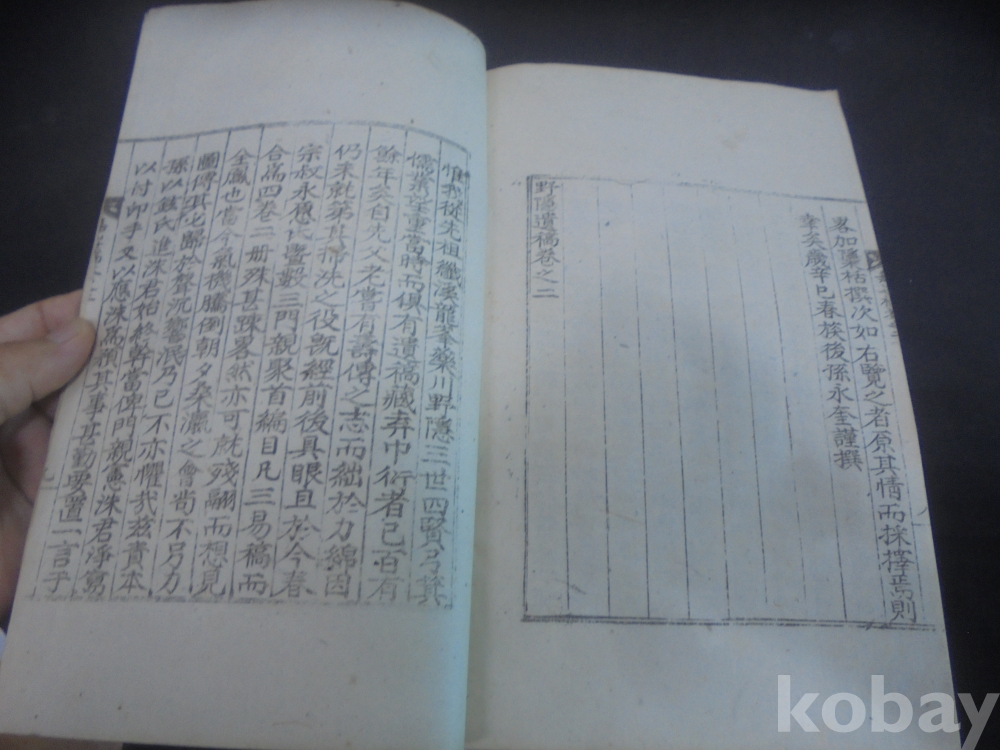 畧加檃栝撰次如右覽之者原其情而採擇焉則
幸矣歲辛巳春族後孫永奎謹撰
野隱遺稿卷之二
惟我從先祖纖溪龍峯藥川野隱三世四賢弓箕
儒業珍重當時而俱有遺稿藏弆巾衍者已百有
餘年矣自先父老嘗有壽傳之志而絀於力綿因
仍未就第其掃洗之役旣經前後具眼且於今春
宗叔永憲氏曁數三門親聚首編目凡三易稿而
合爲四卷二册殊甚踈畧然亦可就殘翮而想見
全鳳也當今氣機騰倒朝夕桑瀛之會尙不另力
圖傳其必歸於聲沉響泯乃已不亦懼哉玆責本
孫以鉉氏進洙君始終幹當俾門親憲洙君淨寫
以付印手又以應洙爲顚其事甚勤要置一言于
kobay